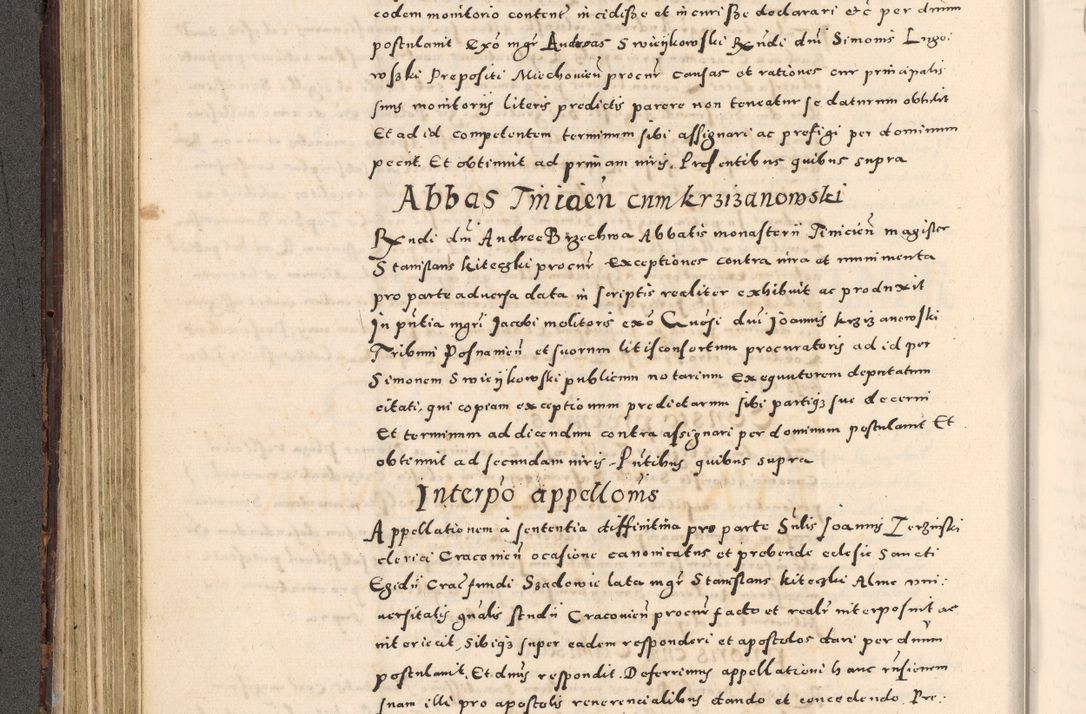 eodem monitorio content in cidisse et incurisse declarari etc per dnum
postulavit Exo mgr Andreas Swieijkowski Rx̃ndi dni Simonis Lugo:
wski Prepositi Miechovien̄ procur̄ causas et rationes cur principalis
suus monitoriis literis predictis parere non teneatur se daturum obtulit
Et ad id competentem terminum sibi assignari ac prefigi per dominum
peciit. Et obtinuit ad primam iuris. Presentibus quibus supra
Abbas Tiniciēn cum krzizanowski
Rx̃ndi dni Andree Brzechwa Abbatis monasterii Tiniciēn magister
Stanislaus kiteczki procur̄ Exceptiones contra iura et munimenta
pro parte adversa data in scriptis realiter exhibuit ac produxit
In pn̄tia mgri Jacobi molitoris exō Gn̄osi dni Joannis krzizanowski
Tribuni Posnanien̄ et suorum litisconsortum procuratoris ad id per
Simonem Swieijkowski publicum notarium Exequutorem deputatum
citati, qui copiam exceptionum predictarum sibi partiq3 sue decerni
Et terminum ad dicendum contra assignari per dominum postulavit Et
obtinuit ad secundam iuris. Pn̄tibus quibus supra
Interpō appellonis
Appellationem à sententia diffinitiva pro parte Joannis
clerici Cracovien̄ ocasione canonicatus et prebende eclesie Sancti
Egidii Crac̄ fundi Szadowie lata mgr Stanislaus kiteczki Alme uni:
versitatis gnālis studii Cracovien̄ procur̄ facto et realr̄ interposuit ac
interiecit, Sibiq3 super eadem responderi et apostolos dari per dnum
postulavit. Et dnus respondit. Deferimus appellationi hanc rn̄sionem
suam illi pro apostolis reverencialibus dando et concedendo. Pre: